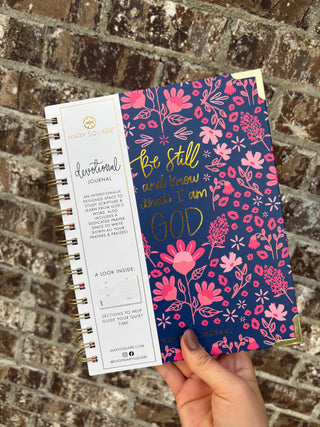 MARY SQUARE
devotional
JOURNAL
AN INTENTIONALLY
DESIGNED SPACE TO
STUDY SCRIPTURE &
LEARN FROM GOD'S
WORD. ALSO
INCLUDES A
DEDICATED PRAYER
SPACE TO WRITE
DOWN ALL YOUR
PRAYERS & PRAISES!
A LOOK INSIDE:
SECTIONS TO HELP
GUIDE YOUR QUIET
TIME
MARYSQUARE.COM
@SHOPMARYSQUARE
Be Still
and know
that I am
GOD
JOURNAL